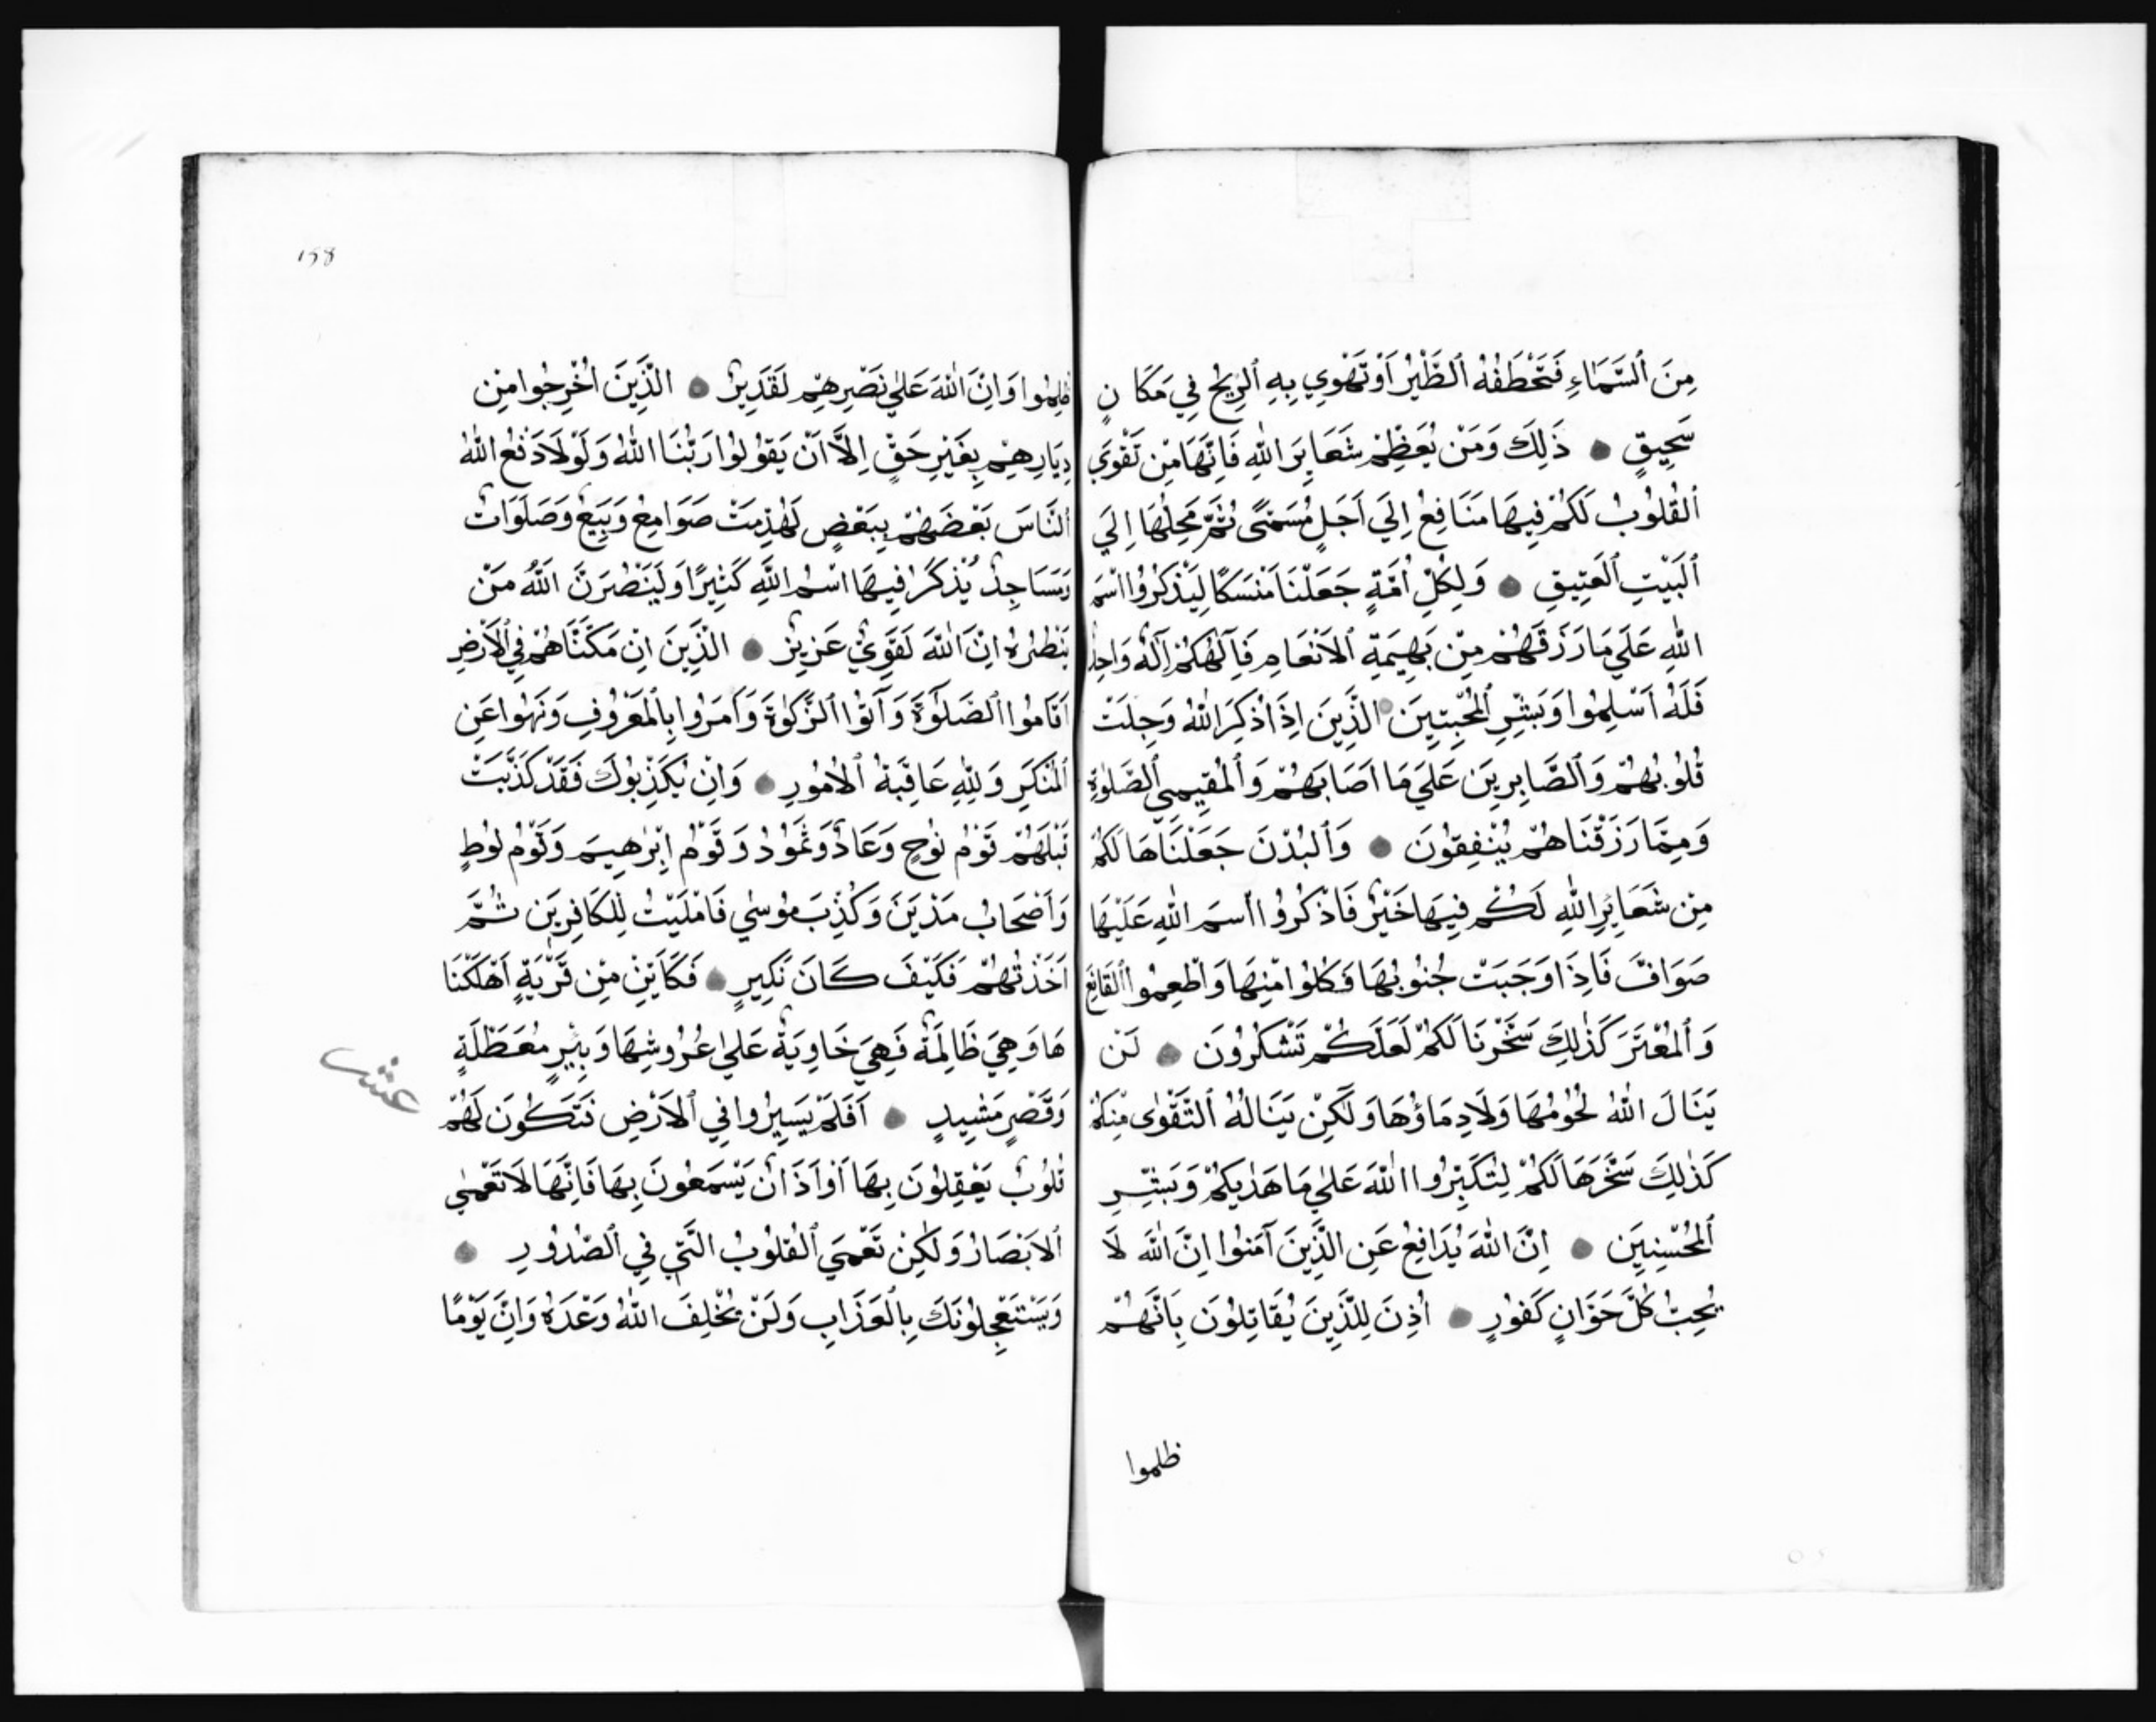 مِنَ ٱلسَّمَاءِ فَتَخْطَفُهُ ٱلطَّيْرُ اَوْ تَهْوِي بِهِ ٱلرِّيحُ فِي مَكَانٍ
سَحِيقٍ ذَلِكَ وَمَنْ يُعَظِّمْ شَعَايِرَ اللّٰهِ فَاِنَّهَا مِنْ تَقْوَي
ٱلْقُلُوبُ لَكُمْ فِيهَا مَنَافِعُ اِلَي اَجَلٍ مُسَمًّى ثُمَّ مَحِلُّهَا اِلَي
ٱلْبَيْتِ ٱلْعَتِيقِ وَلِكُلِّ اُمَّةٍ جَعَلْنَا مَنْسَكًا لِيَذْكُرُوا اسْمَ
اللّٰهِ عَلَي مَا رَزَقَهُمْ مِنْ بَهِيمَةِ ٱلْاَنْعَامِ فَاِلٰهُكُمْ اِلٰهٌ وَاحِدٌ
فَلَهُ اَسْلِمُوا وَبَشِّرِ ٱلْمُخْبِتِينَ الَّذِينَ اِذَا ذُكِرَ اللّٰهُ وَجِلَتْ
قُلُوبُهُمْ وَٱلصَّابِرِينَ عَلَي مَا اَصَابَهُمْ وَٱلْمُقِيمِي ٱلصَّلٰوةِ
وَمِمَّا رَزَقْنَاهُمْ يُنْفِقُونَ وَٱلْبُدْنَ جَعَلْنَاهَا لَكُمْ
مِنْ شَعَايِرِ اللّٰهِ لَكُمْ فِيهَا خَيْرٌ فَاذْكُرُوا اسمَ اللّٰهِ عَلَيْهَا
صَوَافَّ فَاِذَا وَجَبَتْ جُنُوبُهَا فَكُلُوا مِنْهَا وَاَطْعِمُوا ٱلْقَانِعَ
وَٱلْمُعْتَرَّ كَذٰلِكَ سَخَّرْنَا لَكُمْ لَعَلَّكُمْ تَشْكُرُونَ لَنْ
يَنَالَ اللّٰهَ لُحُومُهَا وَلَا دِمَاؤُهَا وَلَكِنْ يَنَالُهُ ٱلتَّقْوٰى مِنْكُمْ
كَذٰلِكَ سَخَّرَهَا لَكُمْ لِتُكَبِّرُوا اللّٰهَ عَلٰي مَا هَدٰيكُمْ وَبَشِّرِ
ٱلْمُحْسِنِينَ اِنَّ اللّٰهَ يُدَافِعُ عَنِ الَّذِينَ آمَنُوا اِنَّ اللّٰهَ لَا
يُحِبُّ كُلَّ خَوَّانٍ كَفُورٍ اُذِنَ لِلَّذِينَ يُقَاتِلُونَ بِاَنَّهُمْ
ظلموا
١٥٨
ظُلِمُوا وَاِنَّ اللّٰهَ عَلٰي نَصْرِهِمْ لَقَدِيرٌ الَّذِينَ اُخْرِجُوا مِنْ
دِيَارِهِمْ بِغَيْرِ حَقٍّ اِلَّا اَنْ يَقُولُوا رَبُّنَا اللّٰهُ وَلَوْلَا دَفْعُ اللّٰهُ
ٱلنَّاسَ بَعْضَهُمْ بِبَعْضٍ لَهُدِمَتْ صَوَامِعُ وَبِيَعٌ وَصَلَوَاتٌ
وَمَسَاجِدُ يُذْكَرُ فِيهَا اسْمُ اللّٰهِ كَثِيرًا وَلَيَنْصُرَنَّ اللّٰهُ مَنْ
يَنْصُرُهُ اِنَّ اللّٰهَ لَقَوِيٌّ عَزِيزٌ الَّذِينَ اِنْ مَكَّنَّاهُمْ فِي ٱلْاَرْضِ
اَقَامُوا ٱلصَّلٰوةَ وَآتَوُا ٱلزَّكٰوةَ وَاَمَرُوا بِٱلْمَعْرُوفِ وَنَهَوا عَنِ
ٱلْمُنْكَرِ وَلِلّٰهِ عَاقِبَةُ ٱلْاُمُورِ وَاِنْ يُكَذِّبُوكَ فَقَدْ كَذَّبَتْ
قَبْلَهُمْ قَوْمُ نُوحٍ وَعَادٌ وَثَمُودُ وَقَوْمُ اِبْرٰهِيمَ وَقَوْمُ لُوطٍ
وَاَصْحَابُ مَدْيَنَ وَكُذِّبَ مُوسٰي فَاَمْلَيْتُ لِلْكَافِرِينَ ثُمَّ
اَخَذْتُهُمْ فَكَيْفَ كَانَ نَكِيرِ فَكَاَيِّنْ مِنْ قَرْيَةٍ اَهْلَكْنَا
هَا وَهِيَ ظَالِمَةٌ فَهِيَ خَاوِيَةٌ عَلٰي عُرُوشِهَا وَبِئْرٍ مُعَطَّلَةٍ
عشر
وَقَصْرٍ مَشِيدٍ اَفَلَمْ يَسِيرُوا فِي ٱلْاَرْضِ فَتَكُونَ لَهُمْ
قُلُوبٌ يَعْقِلُونَ بِهَا اَوْ آذَانٌ يَسْمَعُونَ بِهَا فَاِنَّهَا لَا تَعْمَٰي
ٱلْاَبْصَارُ وَلَكِنْ تَعْمَي ٱلْقُلُوبُ الَّتِي فِي ٱلصُّدُورِ
وَيَسْتَعْجِلُونَكَ بِٱلْعَذَابِ وَلَنْ يُخْلِفَ اللّٰهُ وَعْدَهُ وَاِنَّ يَوْمًا